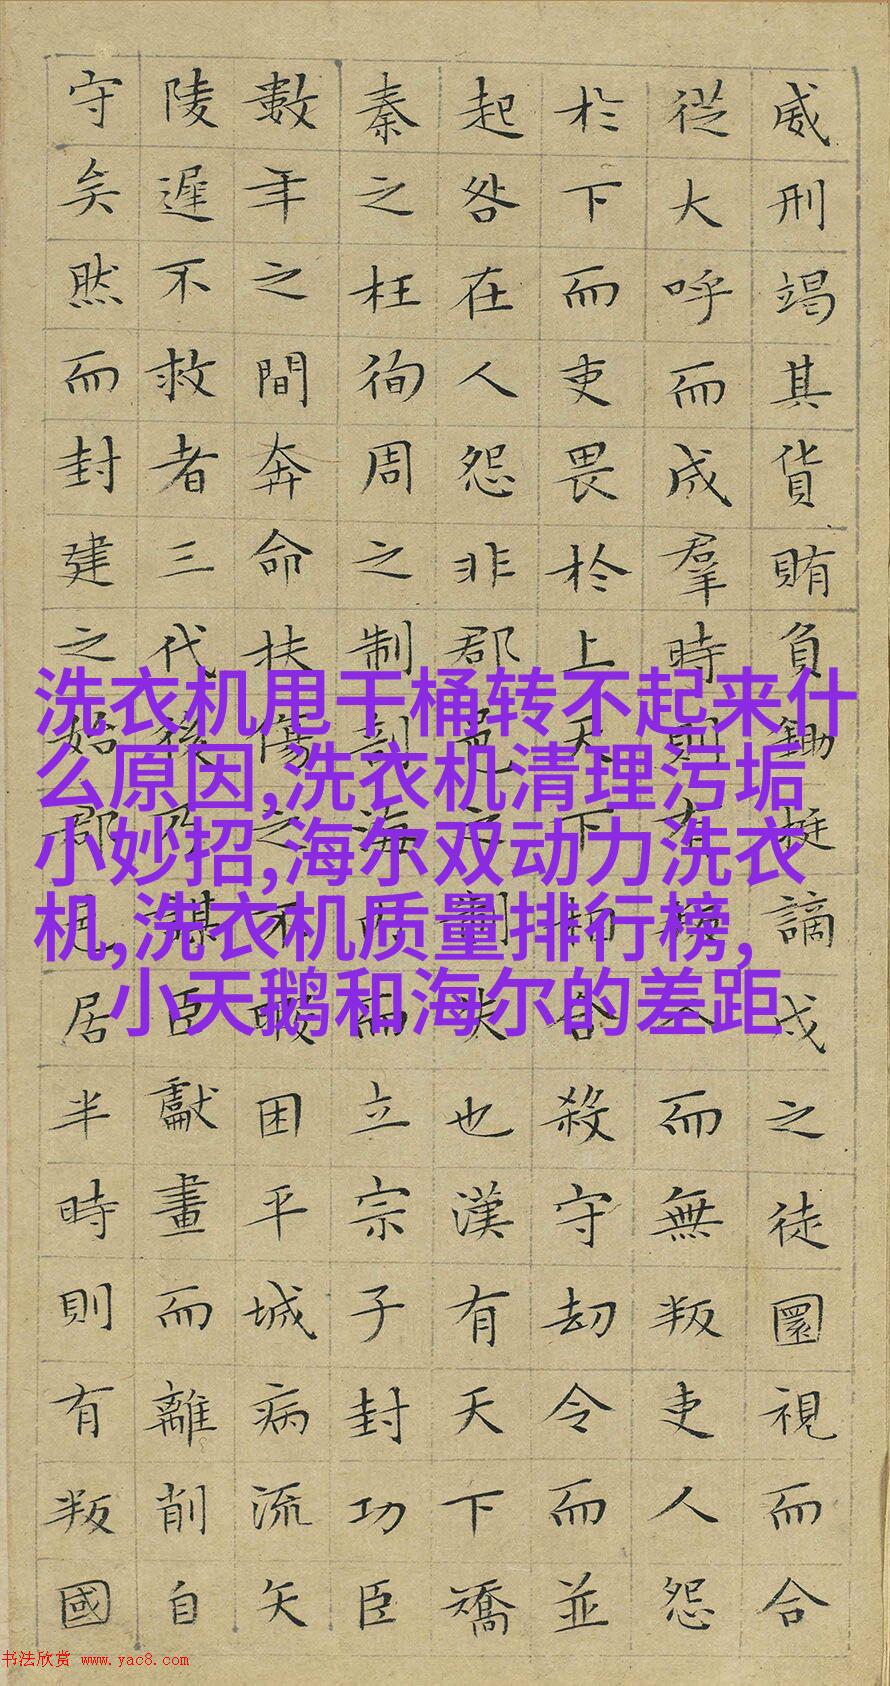 威刑竭其貨賄負鋤梃謫戍之徒圜視而合
從大呼而成羣時則有叛人而無叛吏人怨
於下而吏畏於上天下相合殺守刼令而並
起咎在人怨非郡邑之制失也漢有天下矯
秦之枉徇周之制剖海內而立宗子封功臣
數年之間奔命扶傷之不暇困平城病流矢
陵遲不救者三代後乃謀臣獻畫而離削自
守矣然而封建之始郡邑居半時則有叛國
洗衣机甩干桶转不起来什
么原因,洗衣机清理污垢
小妙招,海尔双动力洗衣
机,洗衣机质量排行榜,
小天鹅和海尔的差距
书法欣赏 www.yac8.com